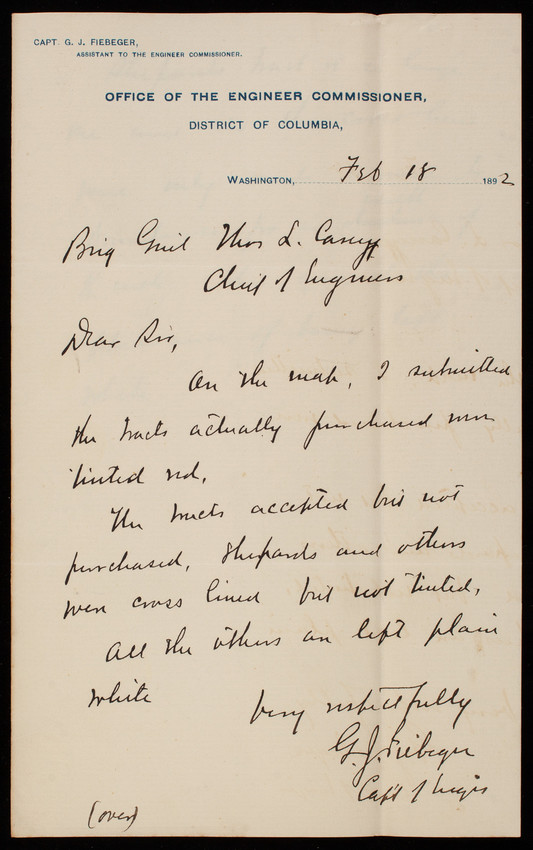 CAPT. G. J. FIEBEGER,
ASSISTANT TO THE ENGINEER COMMISSIONER.
OFFICE OF THE ENGINEER COMMISSIONER,
DISTRICT OF COLUMBIA,
WASHINGTON, Feb 18 1892
Brig Genl Thos L. Casey
Chief of Engineers
Dear Sir,
On the map, I submitted
the tracts actually purchased were
tinted red.
The tracts accepted but not
purchased, Shepards and others
were cross lined but not tinted.
All the others are left plain
white
Very respectfully
G. J. Fiebeger
Capt of Engrs
(over)